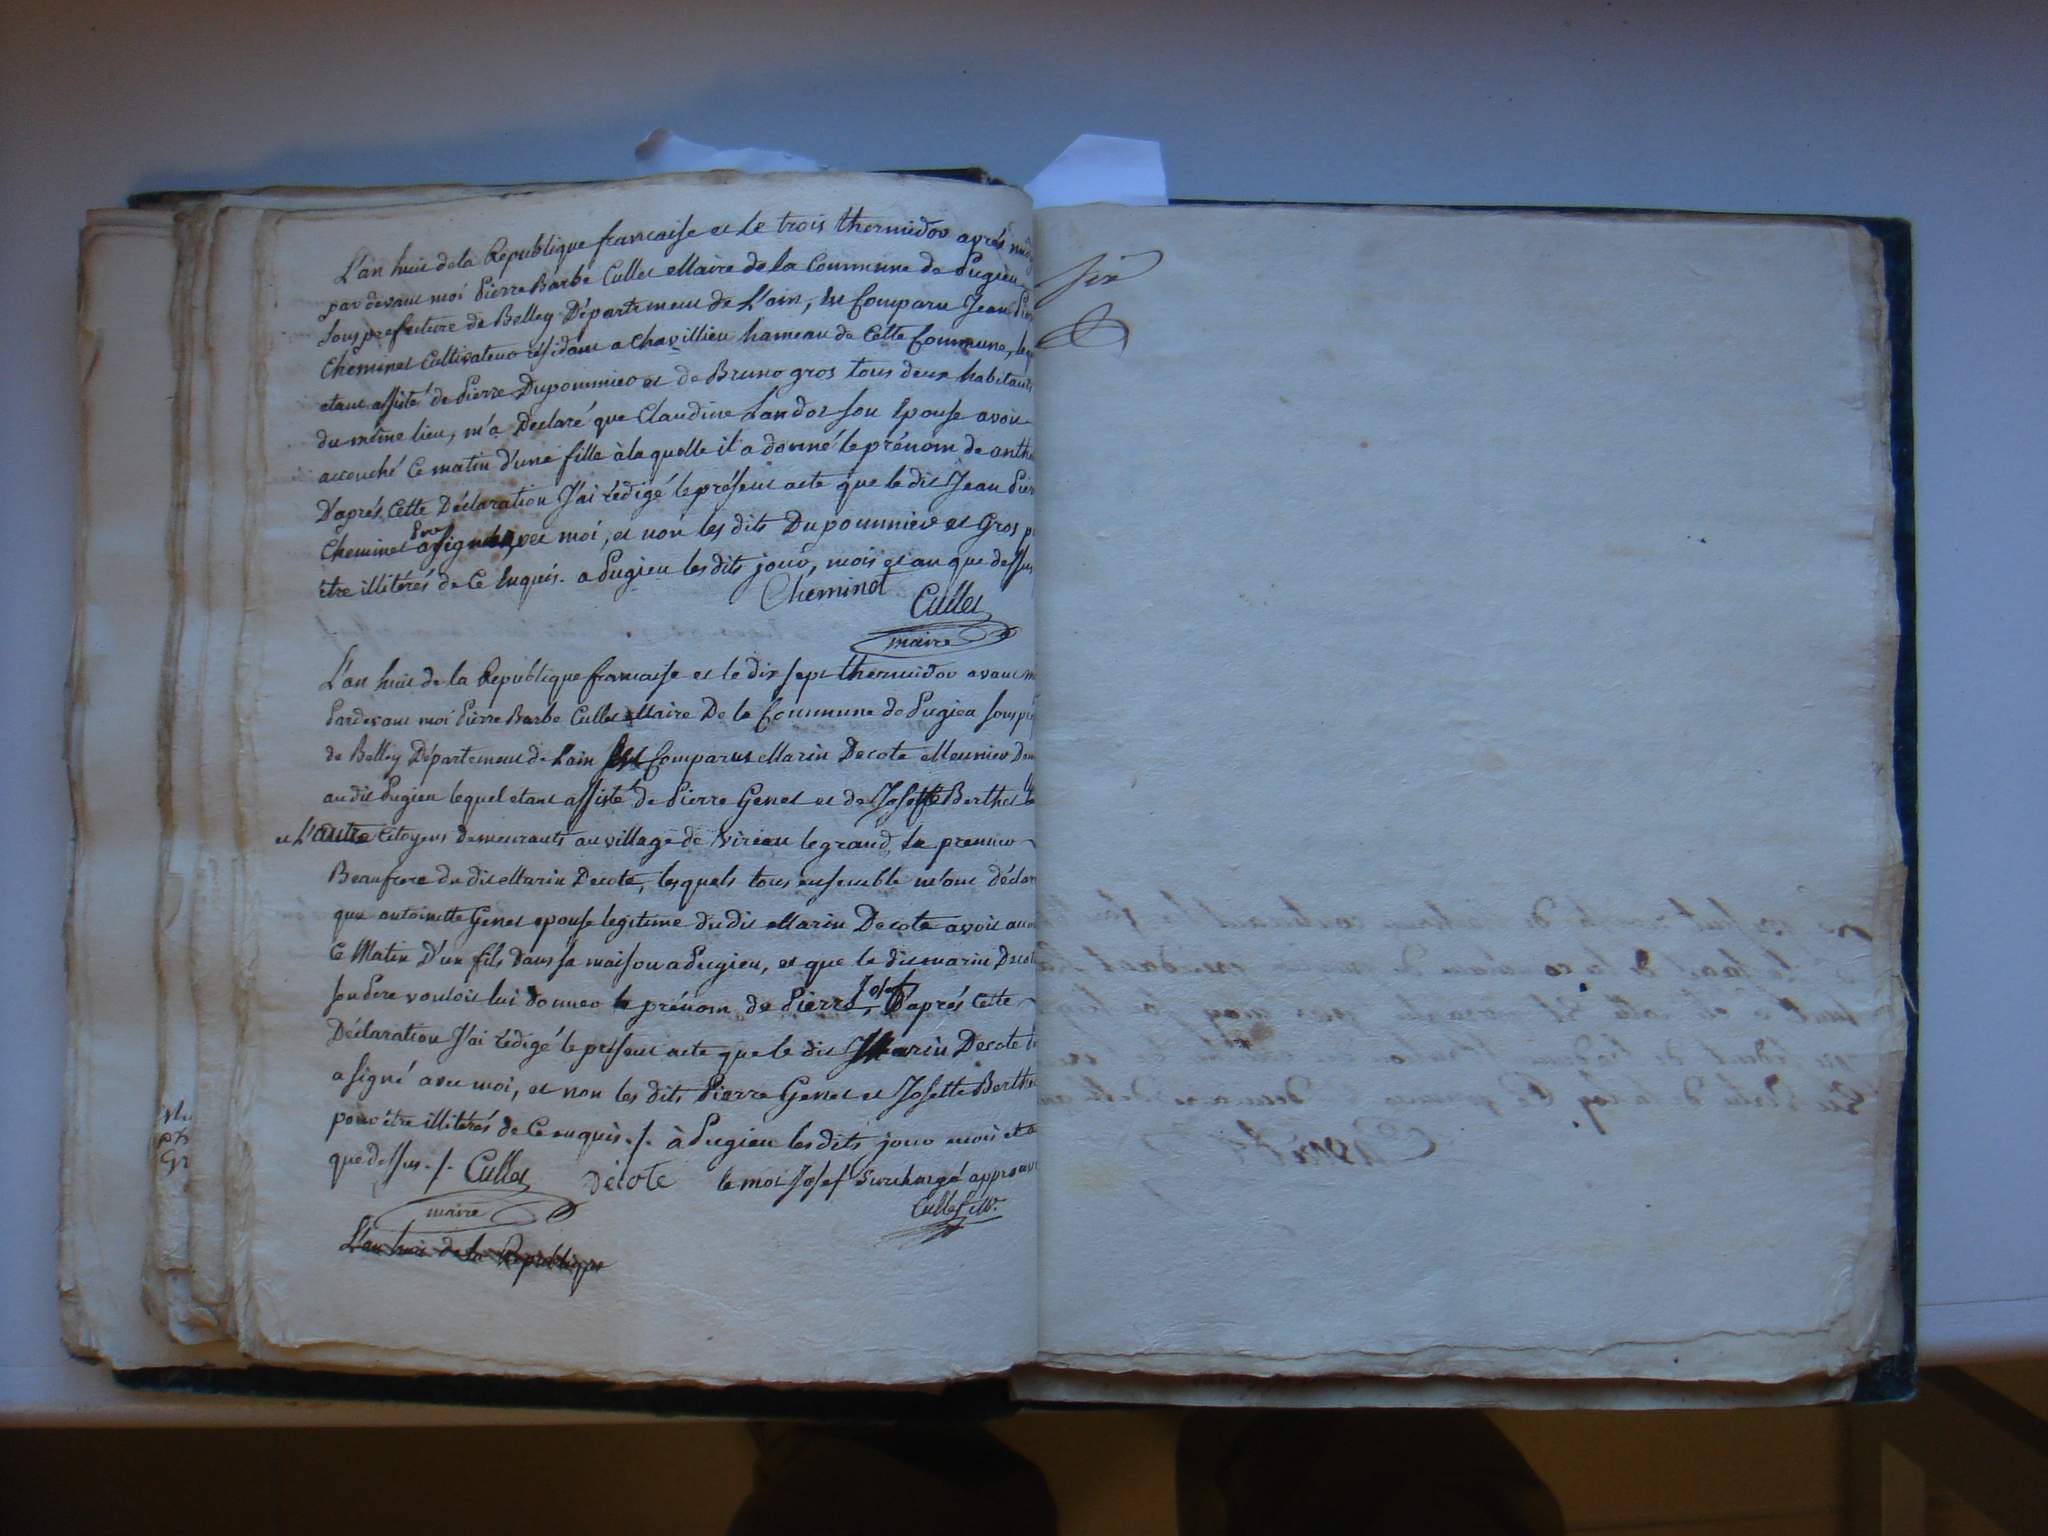 L'an huit de la République francaise et le trois thermidor aprés
par devant moi Pierre Barbe Cullet Maire de la Commune de Pugieu
sous prefecture de Belley Département de L'ain, est Comparu Jean
Cheminet Cultivateur résidant a chavillieu hameau de Cette Commune,
etant assisté de Pierre Dupommier et de Bruno gros tous deux habitants
du même lieu, m'a Declaré que Claudine Landoz son Epouse avoit
accouché Ce matin d'une fille à la quelle il a donné le prénom de anthe
D'aprés Cette Déclaration J'ai rédigé le présent acte que le dit Jean Pier
Cheminet a signé avec moi, et non les dits Dupommier et Gros
être illitérés de Ce Enquis. a Pugieu les dits jour, mois et an que dessus
Cheminet
Cullet
maire
L'an huit de la Republique francaise et le dix sept thermidor avant
Pardevant moi Pierre Barbe Cullet Maire De la Commune de Pugieu sous
de Belley Département de Lain Est Comparut Marin Decote Meunier
au dit Pugieu lequel etant assisté de Pierre Genet et de Josette Berthet
et L'autre Citoyens demeurants au village de Virieu le grand, Le premier
Beaufrere du dit Marin Decote, lesquels tous ensemble m'ont déclar
que antoinette Genet epouse legitime du dit Marin Decote avoit
Ce Matin D'un fils dans sa maison a Pugieu, et que le dit marin Decot
son Pere vouloit lui donner le prénom de Pierre Josef, D'aprés Cette
Déclaration J'ai rédigé le présent acte que le dit Marin Decote
a signé avec moi, et non les dits Pierre Genet et Josette Berthe
pour être illitérés de Ce enquis ./. à Pugieu les dits jour mois et
que dessus ./. Cullet Décote le mot Josef Surchargé approuvé
maire
Cullet M.
L'an huit de la République